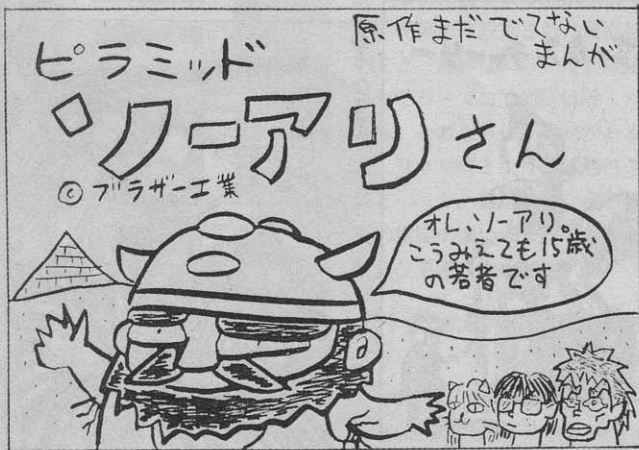 原作まだでてない
まんが
ピラミッド
ソーアリさん
© ブラザー工業
オレ、ソーアリ。
こうみえても15歳
の若者です